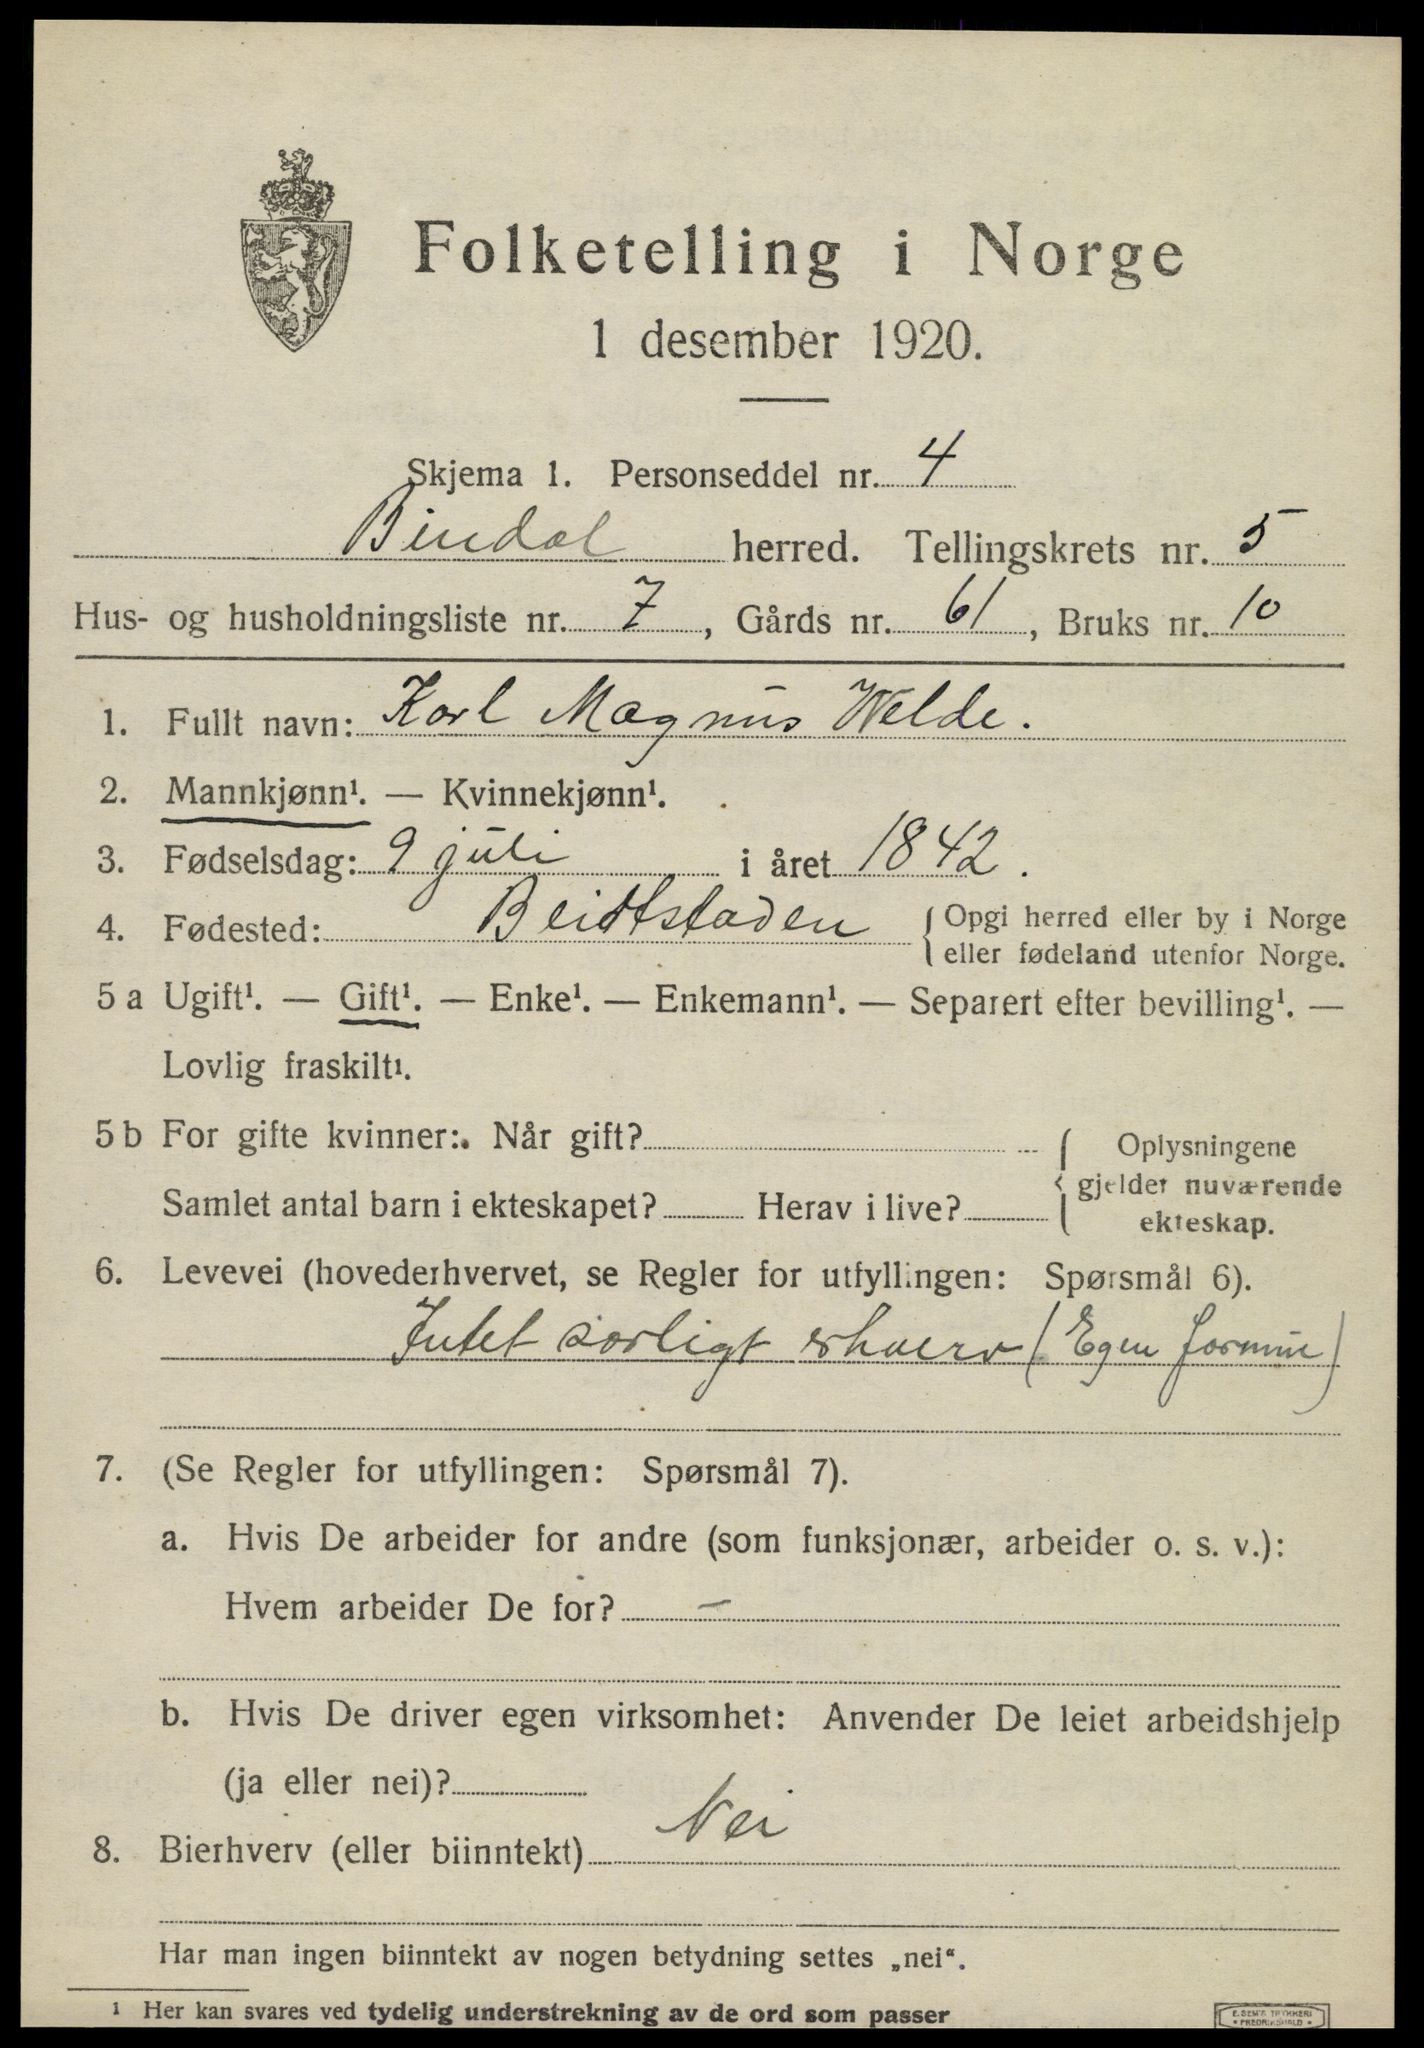 Folketelling i Norge
1 desember 1920.
Skjema 1. Personseddel nr. 4
Bindal herred. Tellingskrets nr. 5
Hus- og husholdningsliste nr. 7, Gårds nr. 61, Bruks nr. 10
1. Fullt navn: Karl Magnus Welde.
2. Mannkjønn¹. — Kvinnekjønn¹.
3. Fødselsdag: 9 juli i året 1842.
4. Fødested: Beidtstaden { Opgi herred eller by i Norge
eller fødeland utenfor Norge.
5 a Ugift¹. — Gift¹. — Enke¹. — Enkemann¹. — Separert efter bevilling¹. —
Lovlig fraskilt¹.
5 b For gifte kvinner: Når gift?
Samlet antal barn i ekteskapet? Herav i live?
{ Oplysningene
gjelder nuværende
ekteskap.
6. Levevei (hovederhvervet, se Regler for utfyllingen: Spørsmål 6).
Intet særligt erhverv (Egen formue)
7. (Se Regler for utfyllingen: Spørsmål 7).
a. Hvis De arbeider for andre (som funksjonær, arbeider o. s. v.):
Hvem arbeider De for? —
b. Hvis De driver egen virksomhet: Anvender De leiet arbeidshjelp
(ja eller nei)?
8. Bierhverv (eller biinntekt) Nei
Har man ingen biinntekt av nogen betydning settes „nei“.
¹ Her kan svares ved tydelig understrekning av de ord som passer
E. SEM'S TRYKKERI
• FREDRIKSHALD •